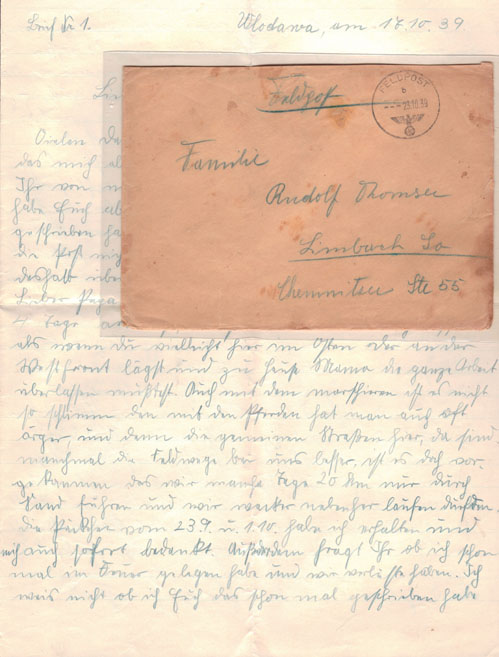 Brief Nr 1.
Wlodawa, am 17.10.39.
Lie
FELDPOST
b
23.10.39
Feldpost
Familie
Rudolf Thomsee
Limbach Sa
Chemnitzer Str 55
Vielen Da
das mich al
Ihr von m
habe Euch ab
geschrieben ha
die Post nig
deshalb übe
Lieber Papa
4 Tage ar
als wenn du vielleicht hier im Osten oder an der
Westfront lägst und zu Hause Mama die ganze Arbeit
überlassen müßtest. Auch mit dem marschieren ist es nicht
so schlimm den mit den Pferden hat man auch oft
ärger, und denn die gemeinen Straßen hier, da sind
manchmal die Feldwege bei uns besser, ist es doch vor-
gekommen das wir manche Tage 20 km nur durch
Sand fuhren und wir weiter nebenher laufen durften.
die Päckchen vom 23.9. u. 1.10. habe ich erhalten und
mich auch sofort bedankt. Außerdem fragt Ihr ob ich schon
mal im Feuer gelegen habe und wir verluste haben. Ich
weis nicht ob ich Euch das schon mal geschrieben habe